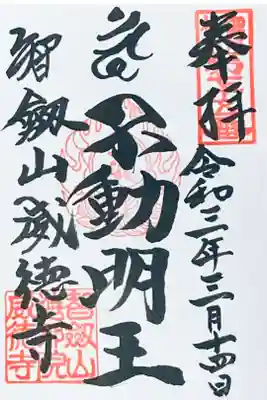 奉拝
令和三年三月十四日
不動明王
智劔山威徳寺
智劔山
威徳寺